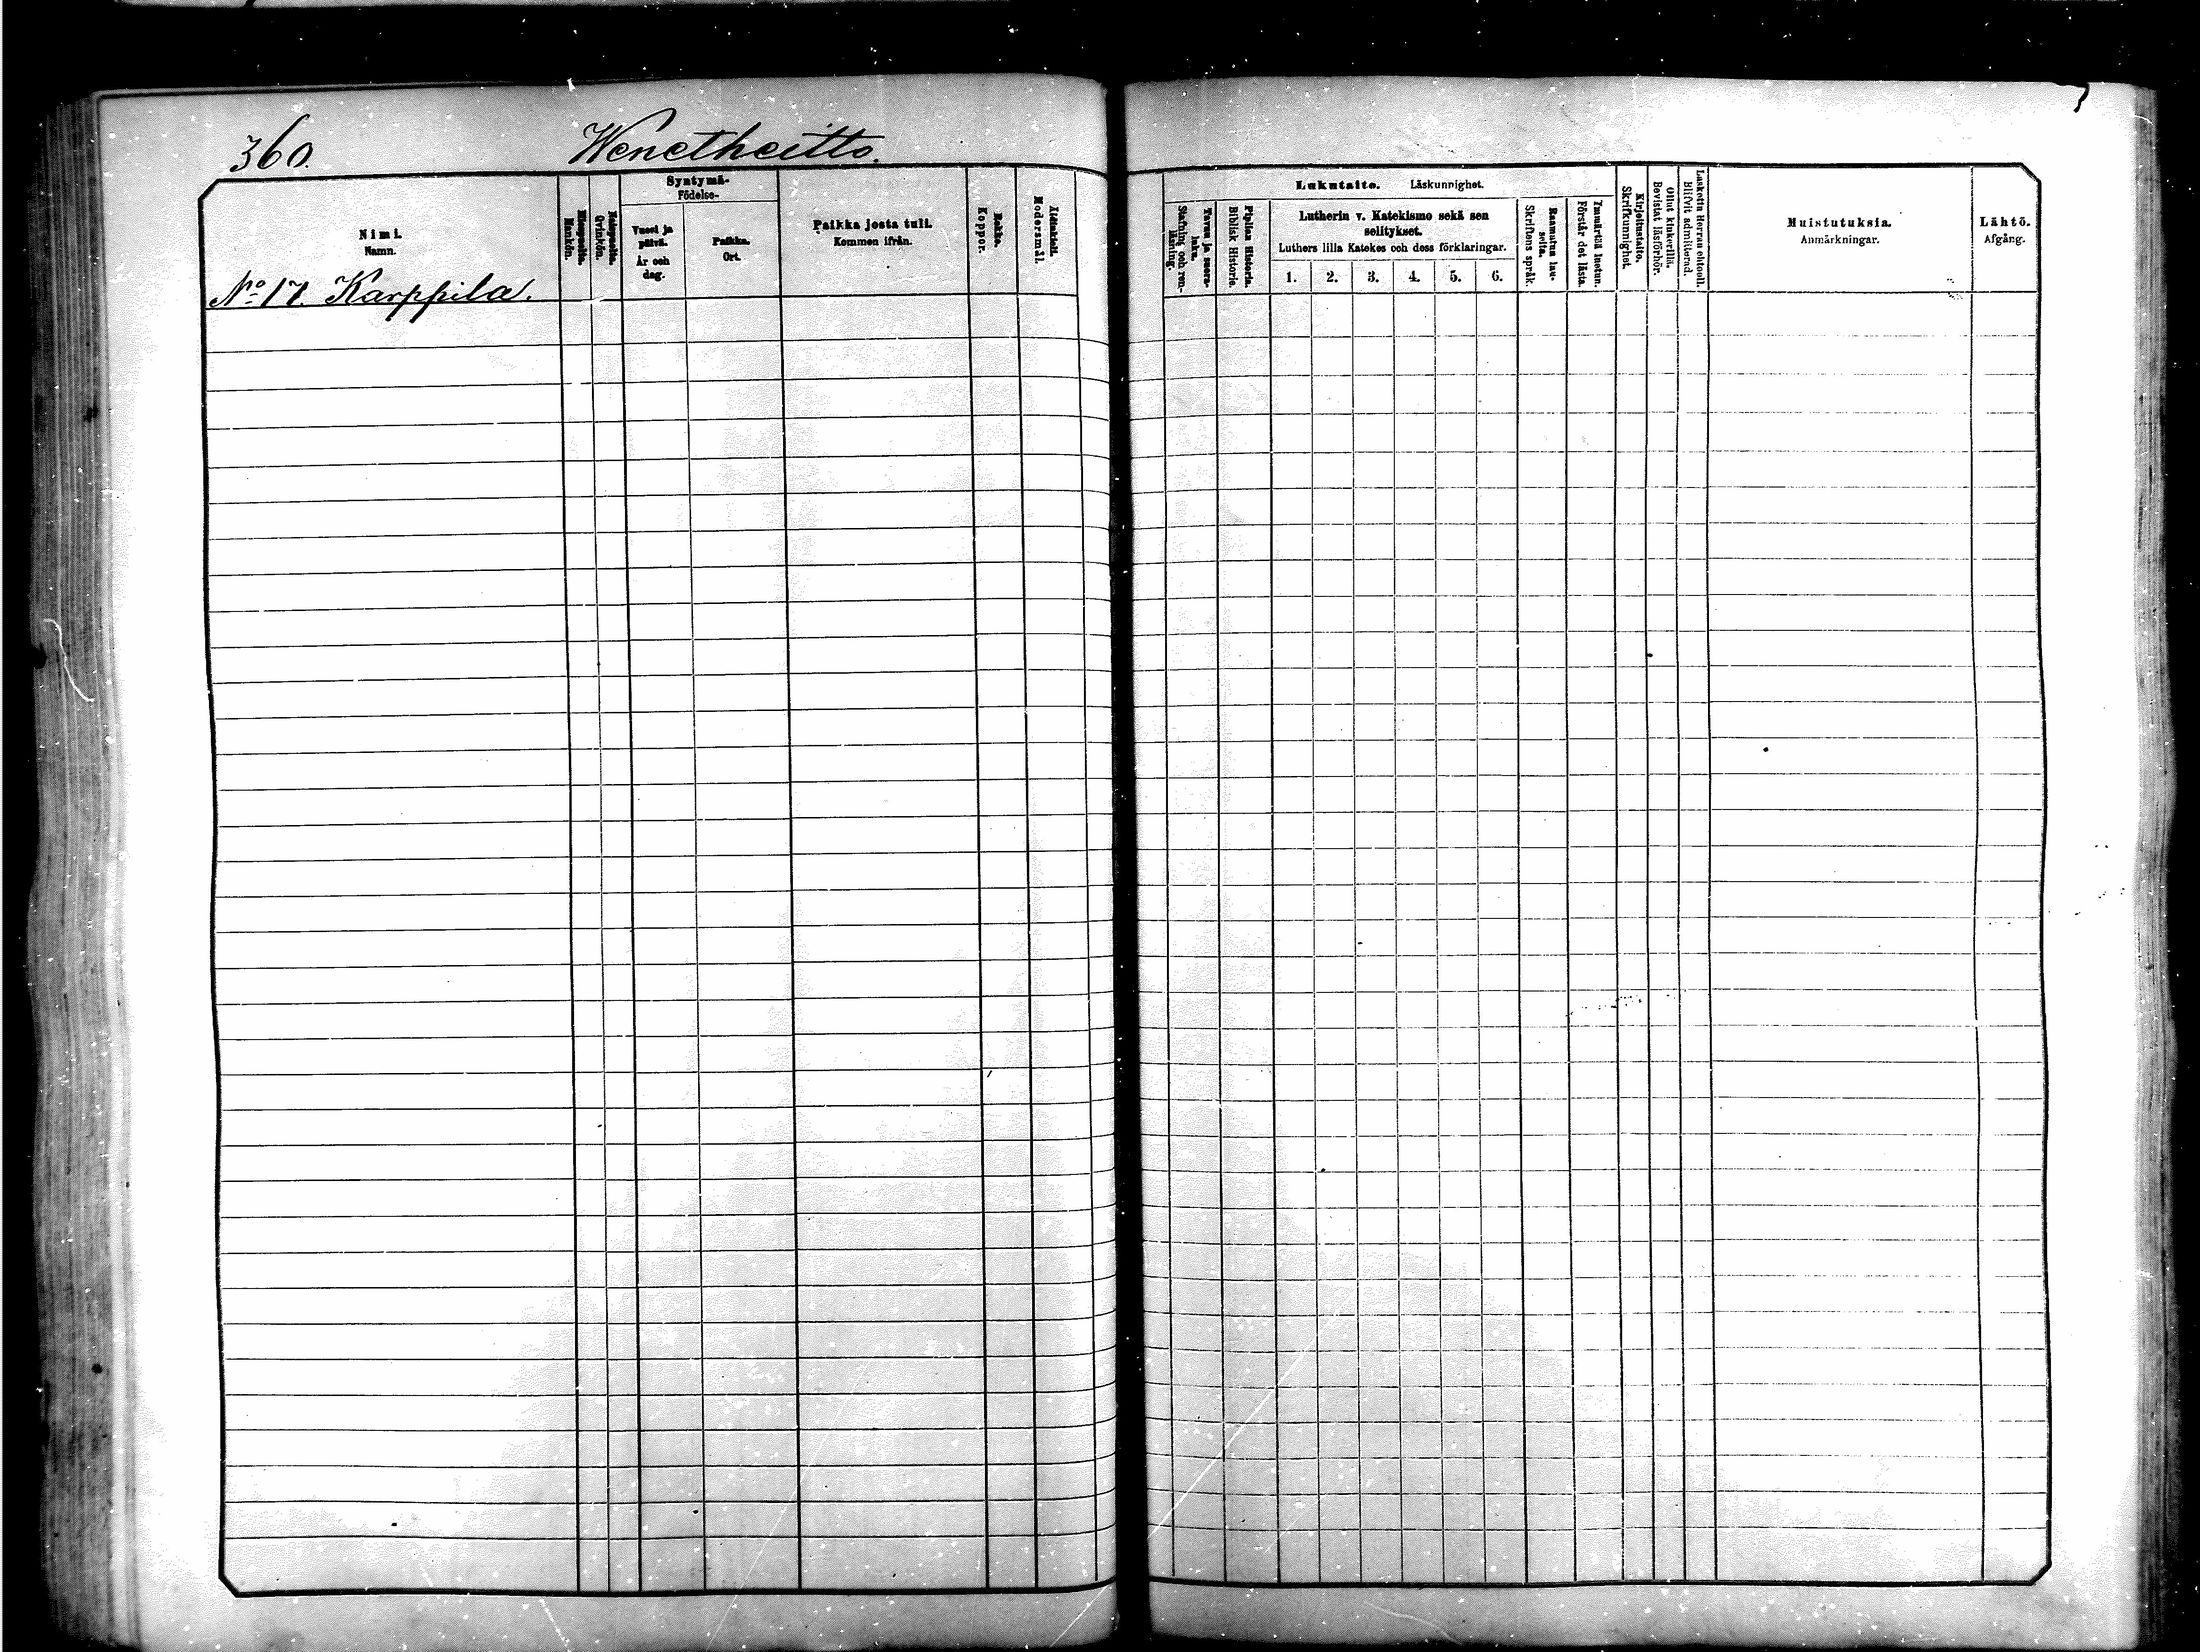 360.
Wenetheitto.
Nimi.
Namn.
Miespuolta.
Mankön.
Naispuolta.
Qvinkön.
Syntymä-
Födelse-
Vuosi ja
päivä.
År och
dag.
Paikka.
Ort.
Paikka josta tuli.
Kommen ifrån.
Rokko.
Koppor.
Äidinkieli.
Modersmål.
No 17 Karppila.
Lukutaito. Läskunnighet.
Tavuu ja suora-
luku.
Stafning och ren-
läsning.
Piplian Historia.
Biblisk Historie.
Lutherin v. Katekismo sekä sen
selitykset.
Luthers lilla Katekes och dess förklaringar.
1. 2. 3. 4. 5. 6.
Raamatun lau-
seita.
Skriftens språk.
Ymmärtää luetun.
Förstår det lästa.
Kirjoitustaito.
Skrifkunnighet.
Ollut kinkerillä.
Bevistat läsförhör.
Laskettu Herran ehtooll.
Blifvit admitterad.
Muistutuksia.
Anmärkningar.
Lähtö.
Afgång.